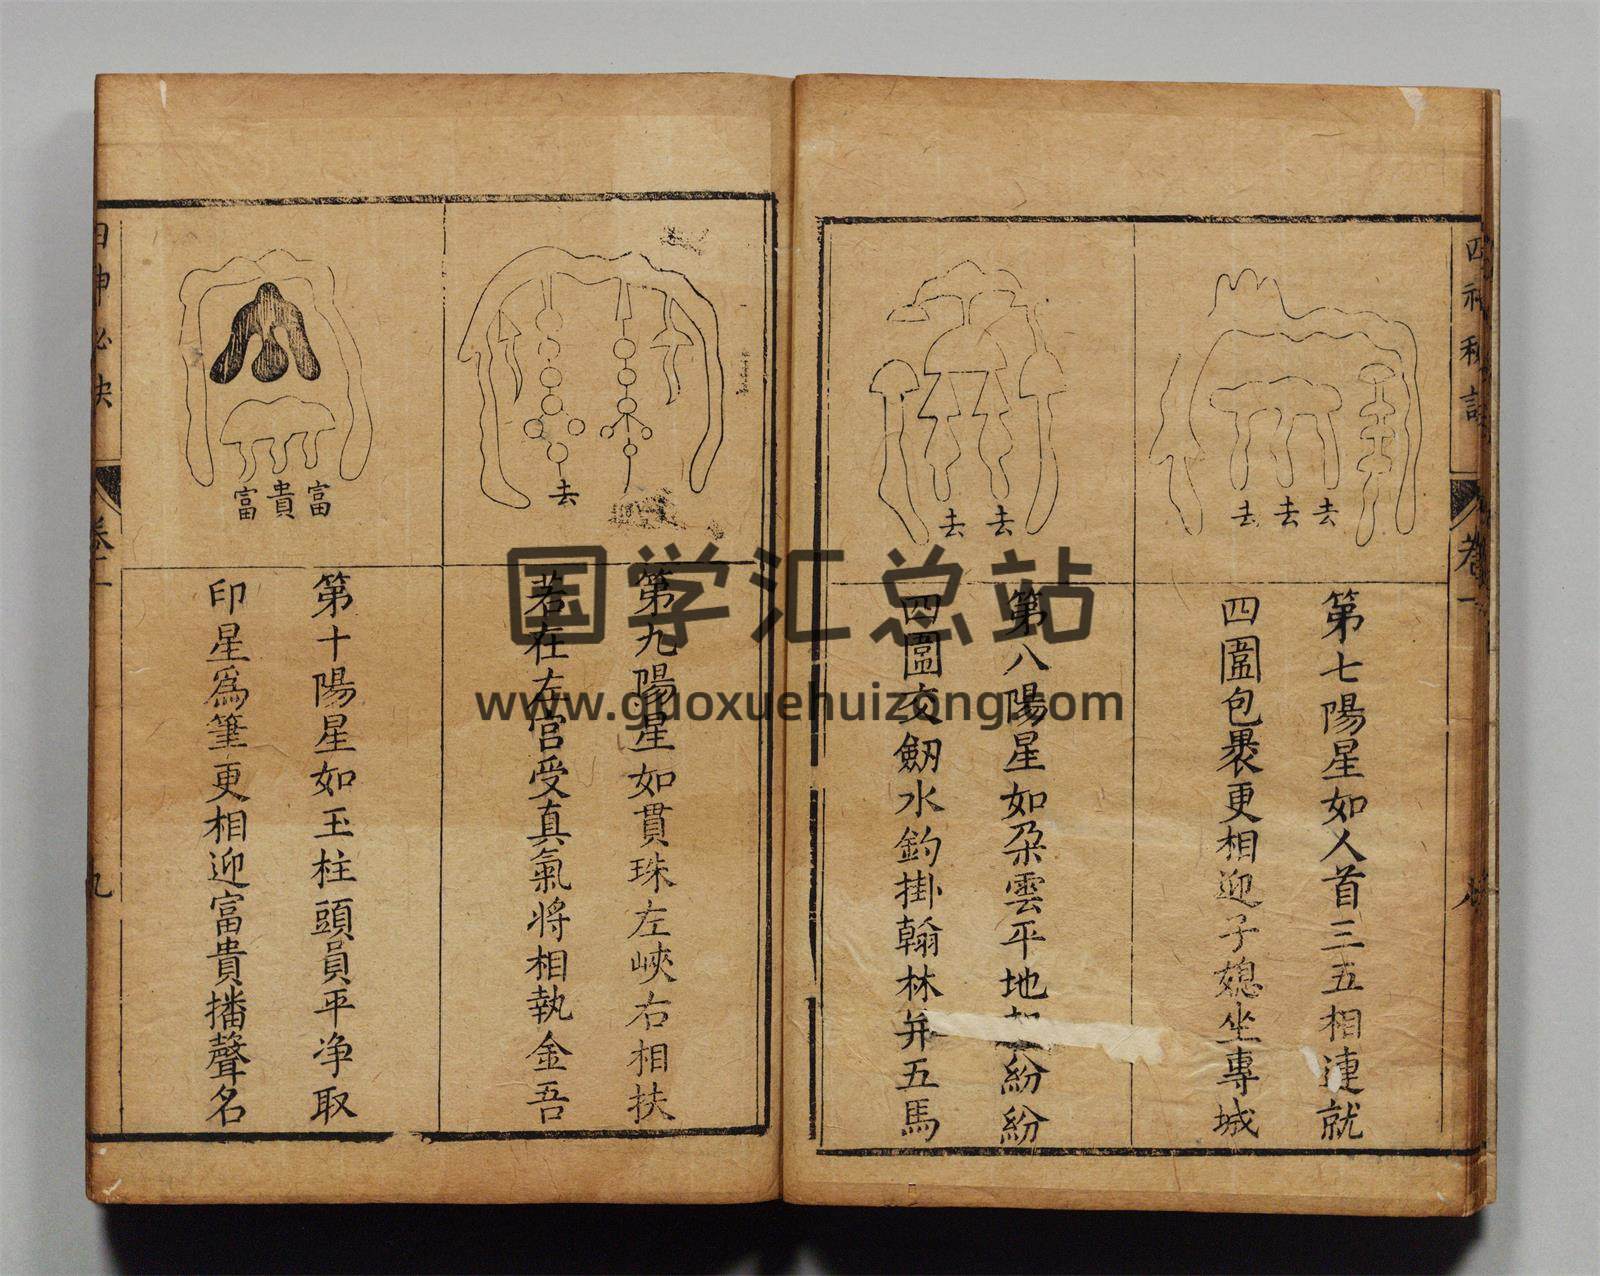 去去去
第七陽星如人首三五相連就
四圍包裹更相迎子媳坐專城
去去
第八陽星如朶雲平地起紛紛
四圍交劒水鈎掛翰林并五馬
去
第九陽星如貫珠左峽右相扶
若在左宫受真氣将相執金吾
富貴富
第十陽星如玉柱頭員平净取
印星爲筆更相迎富貴播聲名
卷二
九
国学汇总站
www.guoxuehuizong.com